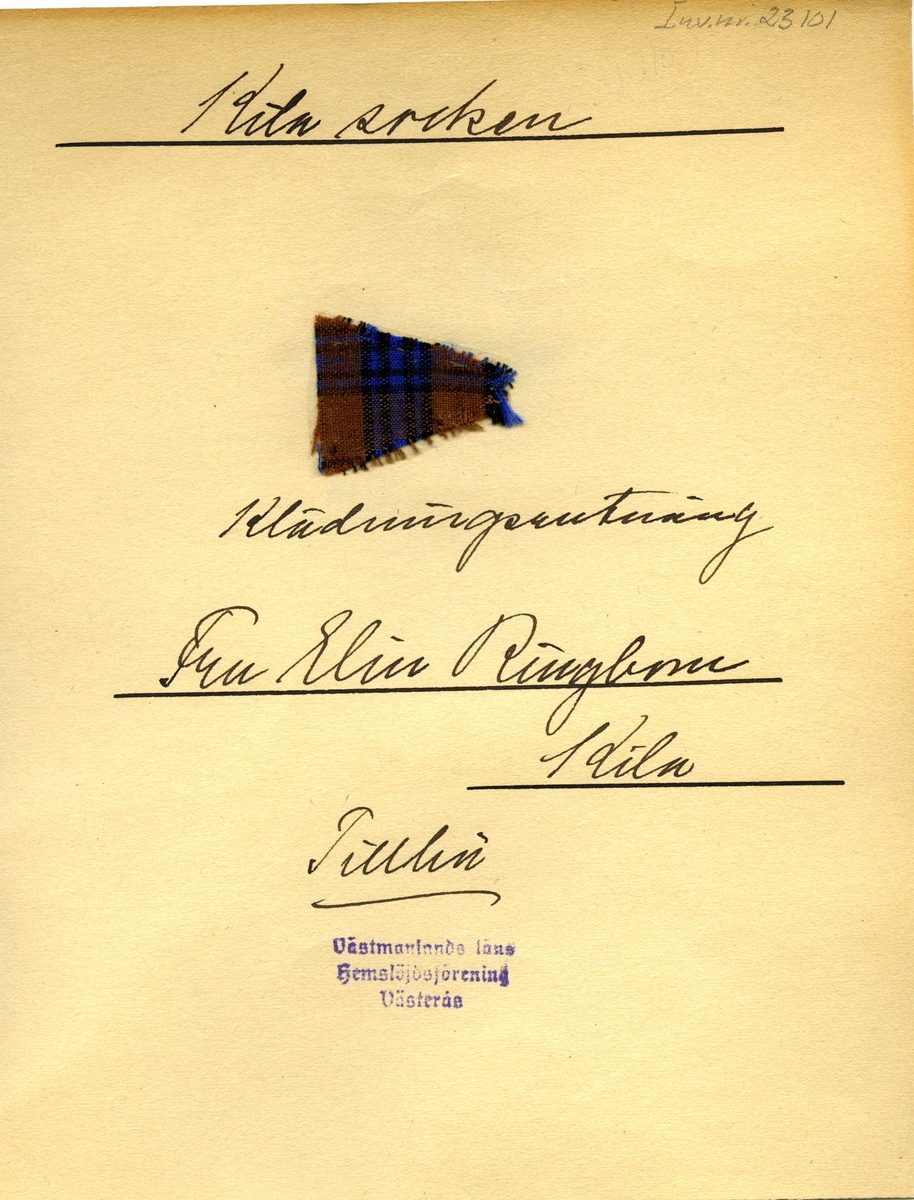 Inv.nr. 23101
Kila socken
Klädning
Fru Elin Ringbom
Kila
Västmanlands läns
Hemslöjdsförening
Västerås